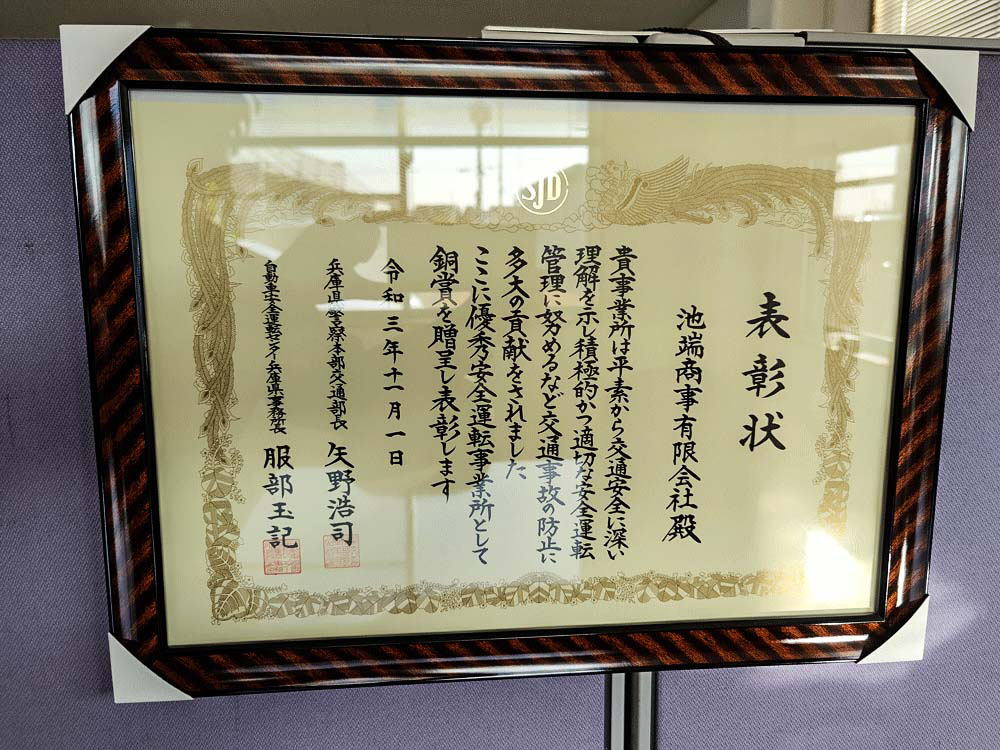 SJD
表彰状
池端商事有限会社殿
貴事業所は平素から交通安全に深い
理解を示し積極的かつ適切な安全運転
管理に努めるなど交通事故の防止に
多大の貢献をされました
ここに優秀安全運転事業所として
銅賞を贈呈し表彰します
令和三年十一月一日
兵庫県警察本部交通部長 矢野浩司
自動車安全運転センター兵庫県事務所長 服部玉記